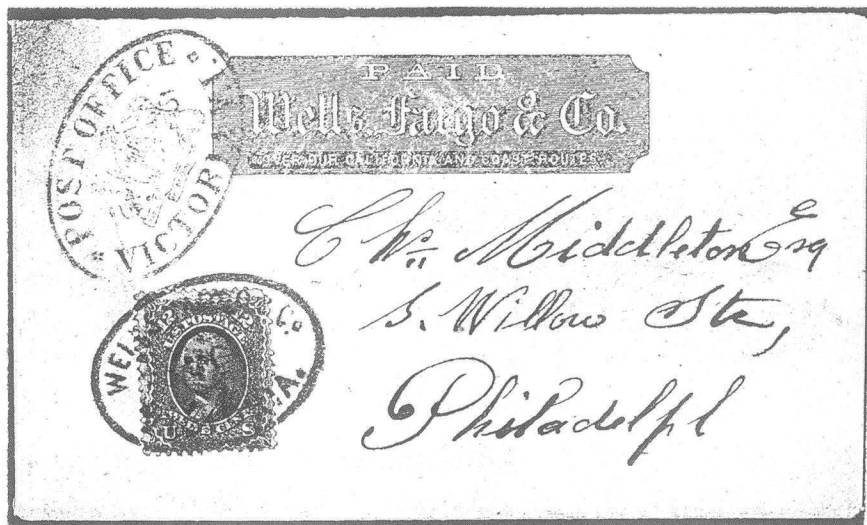 POST OFFICE
VICTOR
PAID
Wells, Fargo & Co.
OVER OUR CALIFORNIA AND COAST ROUTES.
Chs. Middleton Esq
S. Willow Str,
Philadelpl
WE
Co
A.
12 12
U.S. POSTAGE
U S